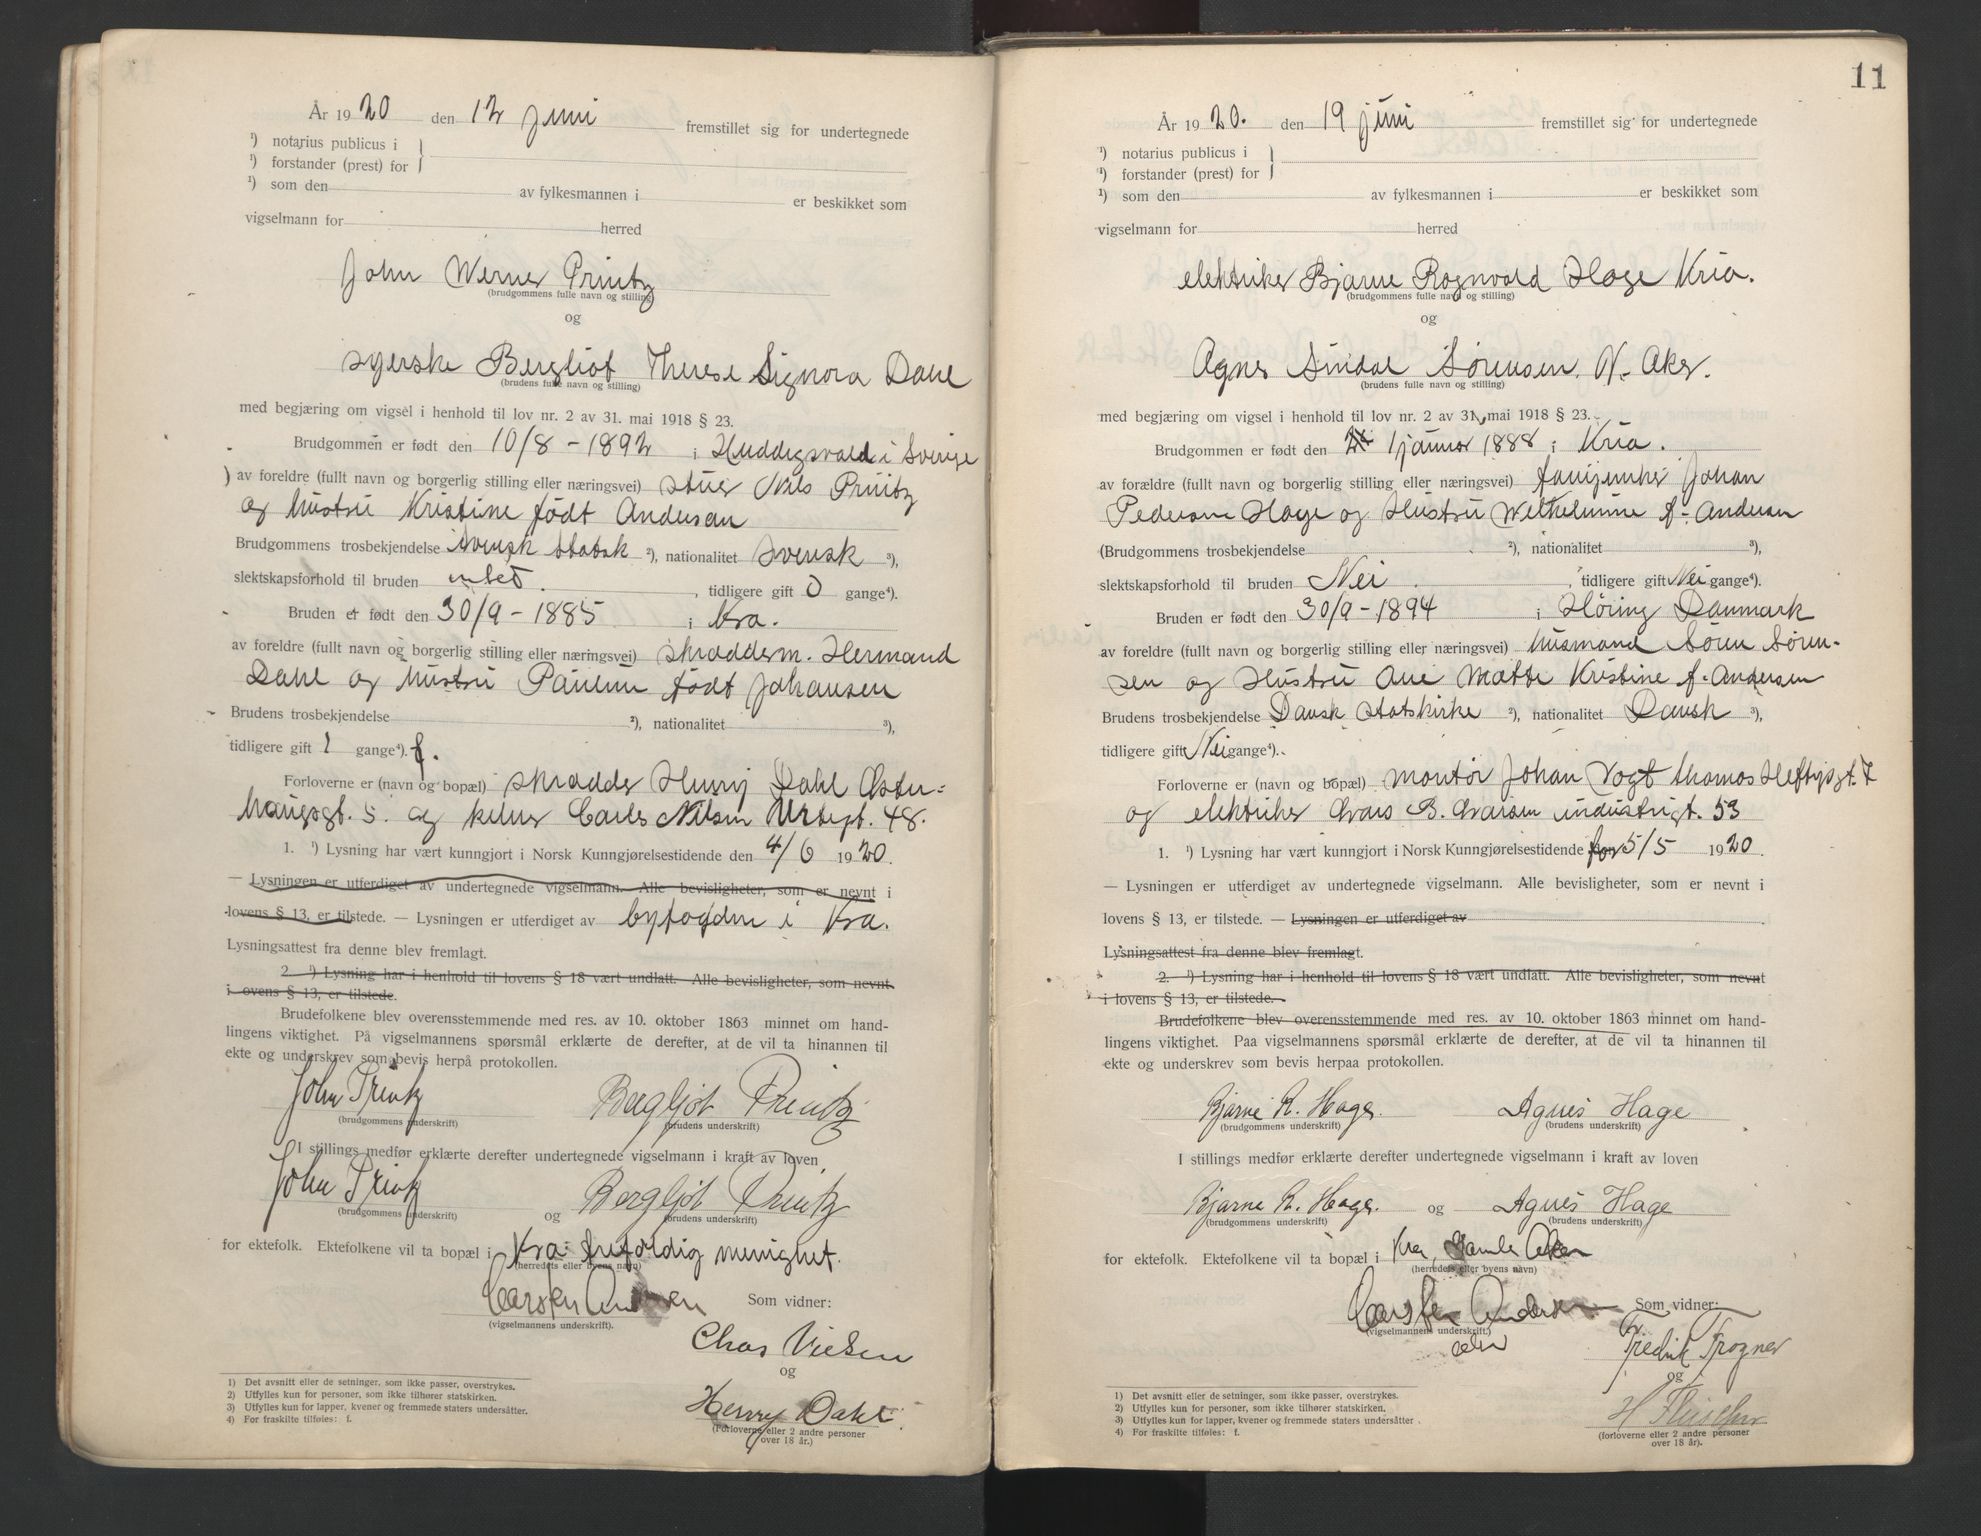 År 1920 den 12 juni fremstillet sig for undertegnede
¹) notarius publicus i
¹) forstander (prest) for
¹) som den av fylkesmannen i er beskikket som
vigselmann for herred
John Werner Printz
(brudgommens fulle navn og stilling)
og
syerske Bergliot Therese Signora Dahl
(brudens fulle navn og stilling)
med begjæring om vigsel i henhold til lov nr. 2 av 31. mai 1918 § 23.
Brudgommen er født den 10/8 - 1892 i Huddigsvald i Sverige
av foreldre (fullt navn og borgerlig stilling eller næringsvei) stuer Nils Printz
og hustru Kristine født Andersan
Brudgommens trosbekjendelse Svensk Statsk ²), nationalitet Svensk ³),
slektskapsforhold til bruden intet. , tidligere gift 0 gange⁴).
Bruden er født den 30/9 - 1885 i Kra.
av foreldre (fullt navn og borgerlig stilling eller næringsvei) skrædderm. Hermand
Dahl og hustru Pauline født Johansen
Brudens trosbekjendelse ²), nationalitet ³),
tidligere gift 1 gange⁴). f.
Forloverne er (navn og bopæl) skrædder Henry Dahl Øster-
haugsgt. 5. og kelner Carls Nilsen Urtegt. 48.
1. ¹) Lysning har vært kunngjort i Norsk Kunngjørelsestidende den 4/6 1920.
— Lysningen er utferdiget av undertegnede vigselmann. Alle bevisligheter, som er nevnt i
lovens § 13, er tilstede. — Lysningen er utferdiget av byfogden i Kra.
Lysningsattest fra denne blev fremlagt.
2. ¹) Lysning har i henhold til lovens § 18 vært undlatt. Alle bevisligheter, som nevnt
i lovens § 13, er tilstede.
Brudefolkene blev overensstemmende med res. av 10. oktober 1863 minnet om hand-
lingens viktighet. På vigselmannens spørsmål erklærte de derefter, at de vil ta hinannen til
ekte og underskrev som bevis herpå protokollen.
John Printz Bergljot Printz
(brudgommens underskrift) (brudens underskrift)
I stillings medfør erklærte derefter undertegnede vigselmann i kraft av loven
John Printz og Bergljot Printz
(brudgommens underskrift) (brudens underskrift)
for ektefolk. Ektefolkene vil ta bopæl i Kra. trefoldig menighet.
(herredets eller byens navn)
Carsten Andersen Som vidner:
(vigselmannens underskrift).
Chas Nielsen
og
Henry Dahl.
(Forloverne eller 2 andre personer
over 18 år.)
1) Det avsnitt eller de setninger, som ikke passer, overstrykes.
2) Utfylles kun for personer, som ikke tilhører statskirken.
3) Utfylles kun for lapper, kvener og fremmede staters undersåtter.
4) For fraskilte tilføies: f.
11
År 1920. den 19 juni fremstillet sig for undertegnede
¹) notarius publicus i
¹) forstander (prest) for
¹) som den av fylkesmannen i er beskikket som
vigselmann for herred
elektriker Bjarne Rognvald Hage Kria.
(brudgommens fulle navn og stilling)
og
Agnes Sindal Sørensen, V. Aker.
(brudens fulle navn og stilling)
med begjæring om vigsel i henhold til lov nr. 2 av 31. mai 1918 § 23.
Brudgommen er født den 1 januar 1888 i Kria.
av forældre (fullt navn og borgerlig stilling eller næringsvei) Johan
Pedersen Hage og Hustru Wilhelmine f. Andersen
(Brudgommens trosbekjendelse ²), nationalitet ³),
slektskapsforhold til bruden Nei , tidligere gift Nei gange⁴).
Bruden er født den 30/9 - 1894 i Høring Danmark
av foreldre (fullt navn og borgerlig stilling eller næringsvei) husmand Sören Sören-
sen og Hustru Ane Mætte Kristine f. Andersen
Brudens trosbekjendelse Dansk Statskirke ²), nationalitet Dansk ³),
tidligere gift Nei gange⁴).
Forloverne er (navn og bopæl) montör Johan Vogt Thomas Heftyisgt. 7
og elektriker B. industrigt. 53
1. ¹) Lysning har vært kunngjort i Norsk Kunngjørelsestidende for 5/5 1920.
— Lysningen er utferdiget av undertegnede vigselmann. Alle bevisligheter, som er nevnt i
lovens § 13, er tilstede. — Lysningen er utferdiget av
Lysningsattest fra denne blev fremlagt.
2. ¹) Lysning har i henhold til lovens § 18 vært undlatt. Alle bevisligheter, som nevnt
i lovens § 13, er tilstede.
Brudefolkene blev overensstemmende med res. av 10. oktober 1863 minnet om hand-
lingens viktighet. Paa vigselmannens spørsmål erklærte de derefter, at de vil ta hinannen til
ekte og underskrev som bevis herpaa protokollen.
Bjarne R. Hage. Agnes Hage
(brudgommens underskrift) (brudens underskrift)
I stillings medfør erklærte derefter undertegnede vigselmann i kraft av loven
Bjarne R. Hage. og Agnes Hage
(brudgommens underskrift) (brudens underskrift)
for ektefolk. Ektefolkene vil ta bopæl i Kra, Gamle Aker
(herredets eller byens navn)
Carsten Andersen Som vidner:
(vigselmannens underskrift.)
Fredrik Trogner
og
H Fleischer
(forloverne eller 2 andre personer
over 18 år).
1) Det avsnitt eller de setninger, som ikke passer, overstrykes.
2) Utfylles kun for personer, som ikke tilhører statskirken.
3) Utfylles kun for lapper, kvener og fremmede staters undersåtter.
4) For fraskilte tilføies: f.